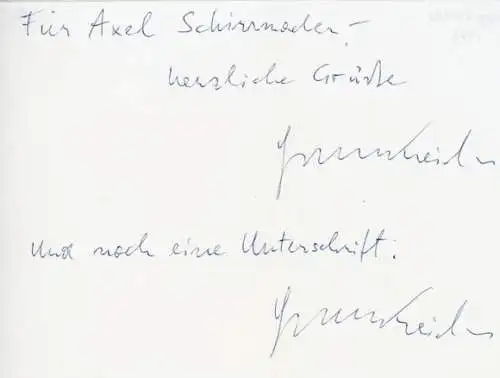 Für Axel Schirrmader –
herzliche Grüße
Und noch eine Unterschrift: